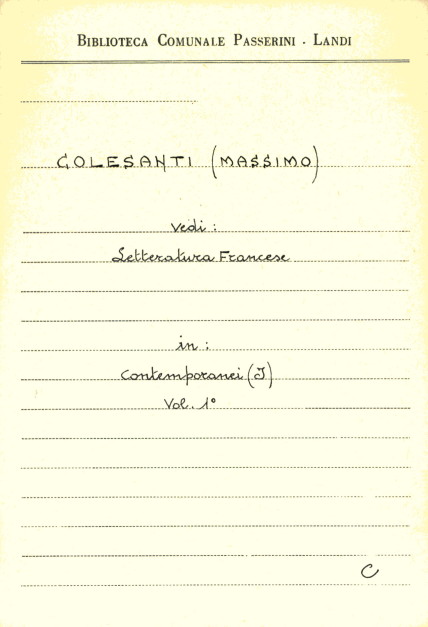 BIBLIOTECA COMUNALE PASSERINI - LANDI
COLESANTI (MASSIMO)
vedi :
Letteratura Francese
in :
Contemporanei (I)
Vol. 1°
C